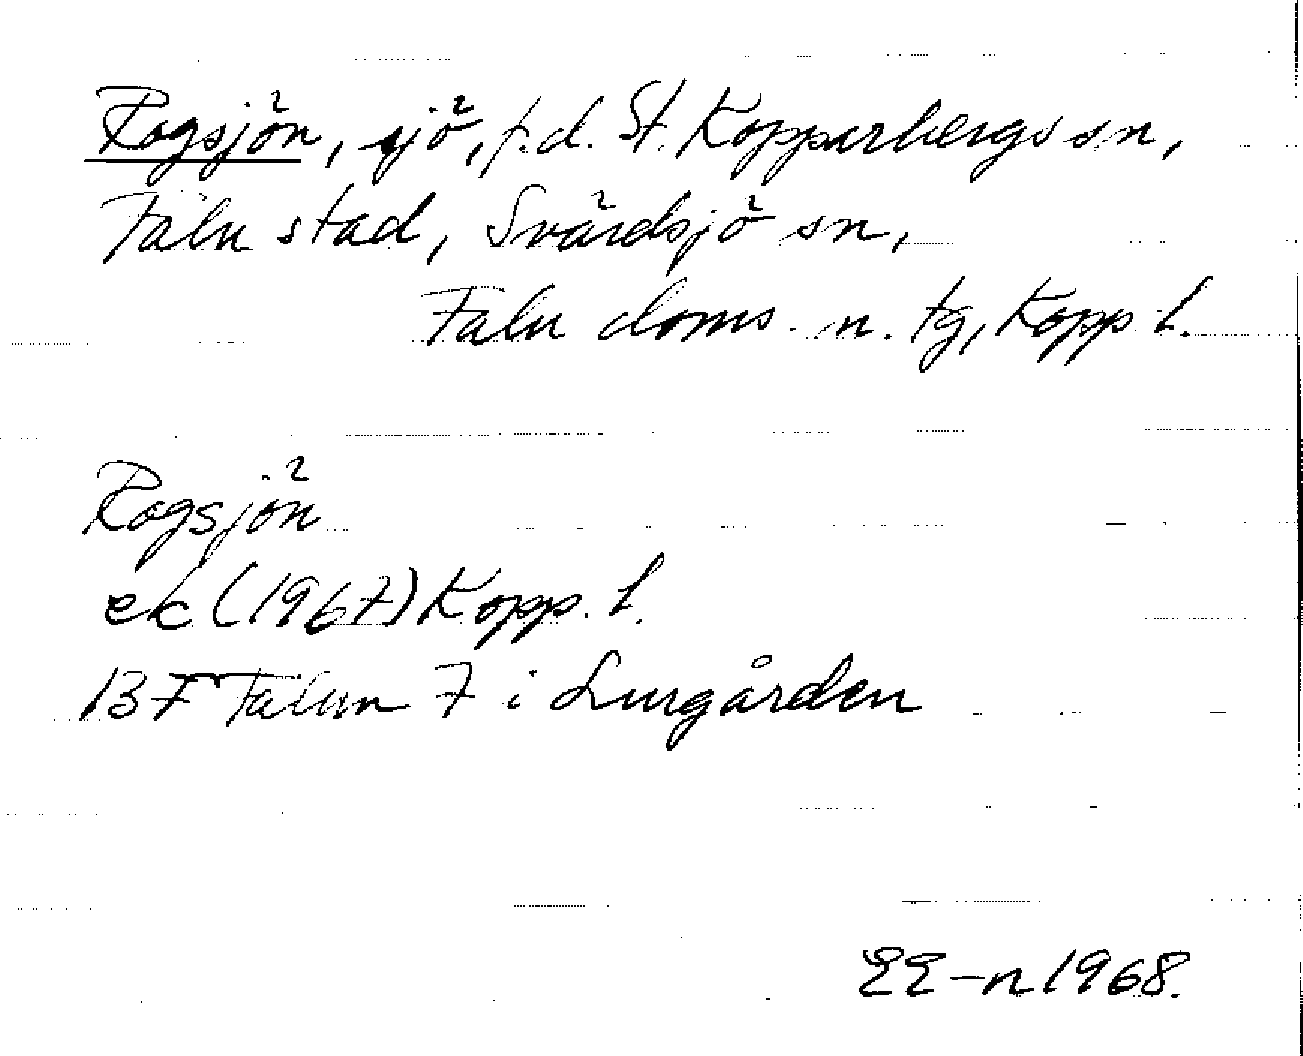 Rogsjön, sjö, p.d. St. Kopparbergs sn,
Falu stad, Svärdsjö sn,
Falu doms. n. tg, Kopp l.
Rogsjön
ek (1967) Kopp. l.
13 F Falun 7 i Lurgården
EE-n 1968.